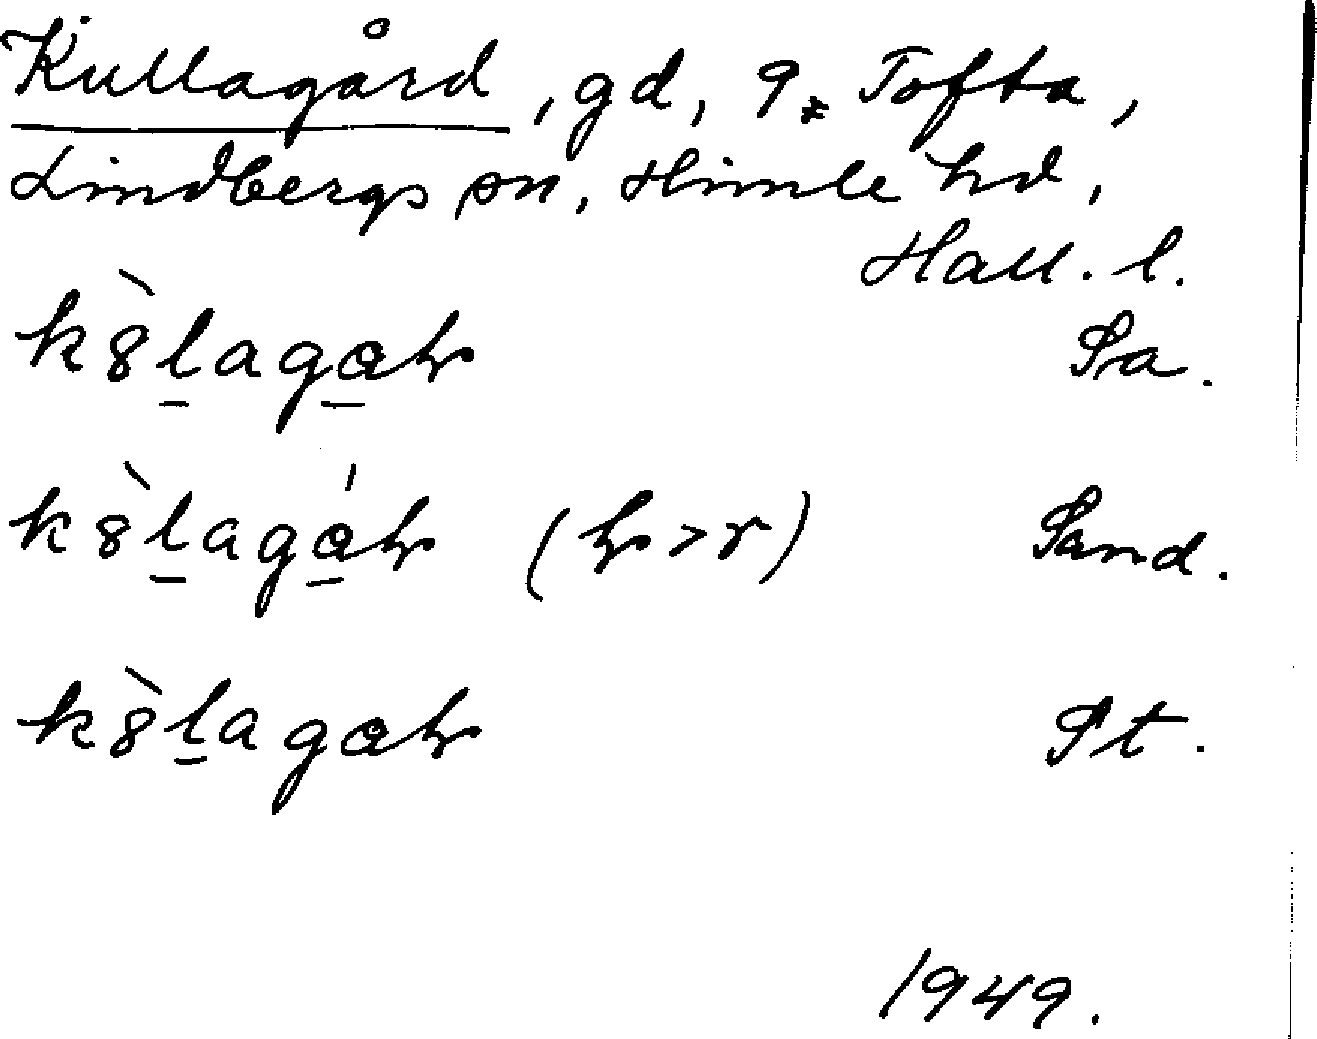 Kullagård, gd, 9⁎ Tofta,
Lindbergs sn, Himle hd,
Hall. l.
k8̀l̲agɑ̲ꝛ Sa.
k8̀l̲agɑ̲́ꝛ (ꝛ>r) Sand.
k8̀l̲agɑꝛ St.
1949.